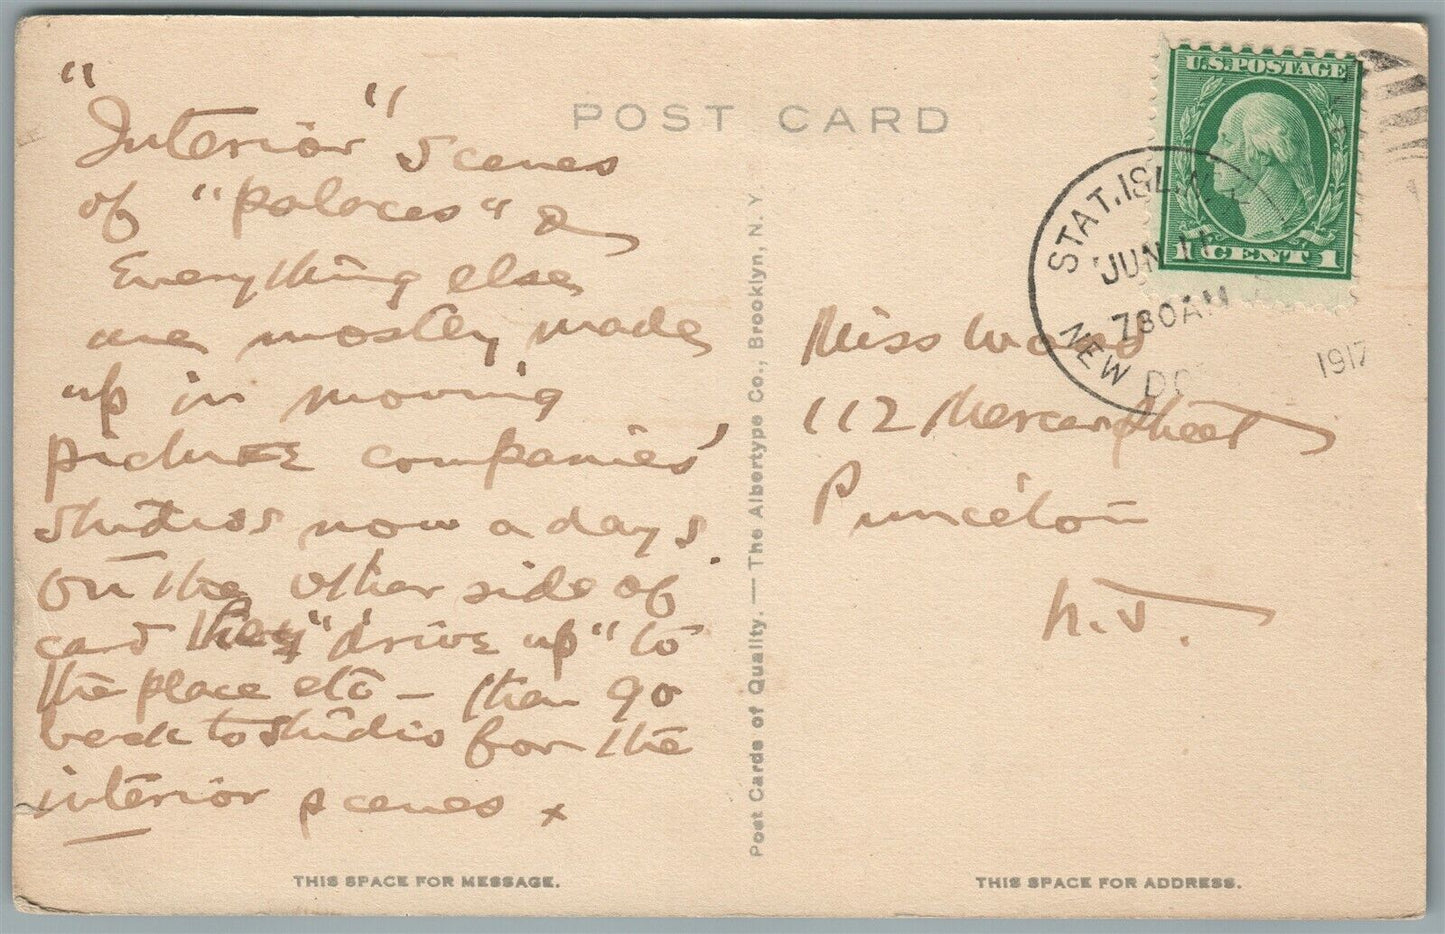 POST CARD
"Interior" Scenes
of "palaces" &
Everything else,
are mostly made
up in moving
picture companies'
studios now a days.
On the other side of
card they "drive up" to
the place etc — then go
back to studio for the
interior scenes x
THIS SPACE FOR MESSAGE.
Post Cards of Quality. — The Albertype Co., Brooklyn, N. Y.
U.S. POSTAGE
1 CENT 1
STAT. ISL. N.Y.
JUN 11
730 AM
1917
NEW DO
Miss Wood
112 Mercer Street
Princeton
N. J.
THIS SPACE FOR ADDRESS.